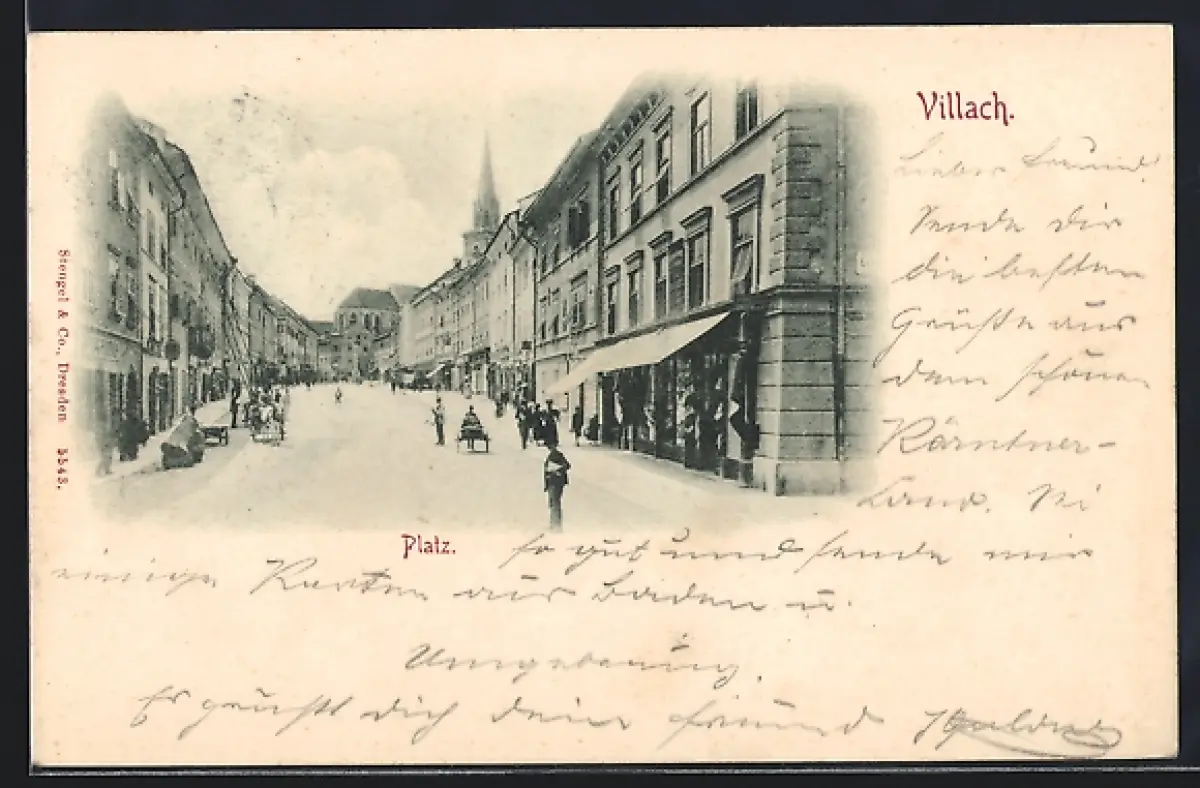 Villach.
Lieber Freund!
Sende Dir
die besten
Grüße aus
dem schönen
Kärntner-
Land. Sei
Platz.
so gut und sende mir
einige Karten aus Baden u.
Umgebung.
Es grüßt dich dein Freund
Stengel & Co., Dresden 5543.